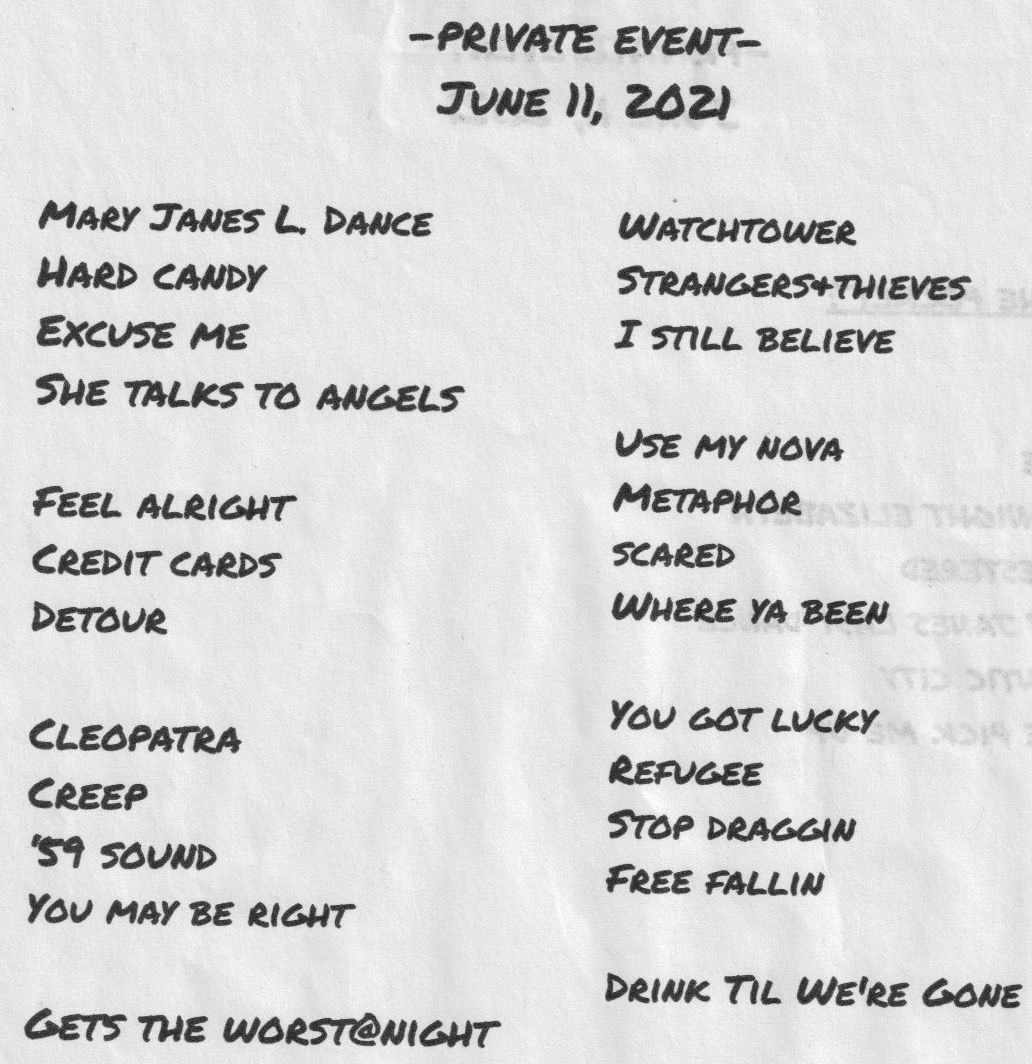 -PRIVATE EVENT-
JUNE 11, 2021
MARY JANES L. DANCE
HARD CANDY
EXCUSE ME
SHE TALKS TO ANGELS
FEEL ALRIGHT
CREDIT CARDS
DETOUR
CLEOPATRA
CREEP
'59 SOUND
YOU MAY BE RIGHT
GETS THE WORST@NIGHT
WATCHTOWER
STRANGERS+THIEVES
I STILL BELIEVE
USE MY NOVA
METAPHOR
SCARED
WHERE YA BEEN
YOU GOT LUCKY
REFUGEE
STOP DRAGGIN
FREE FALLIN
DRINK TIL WE'RE GONE